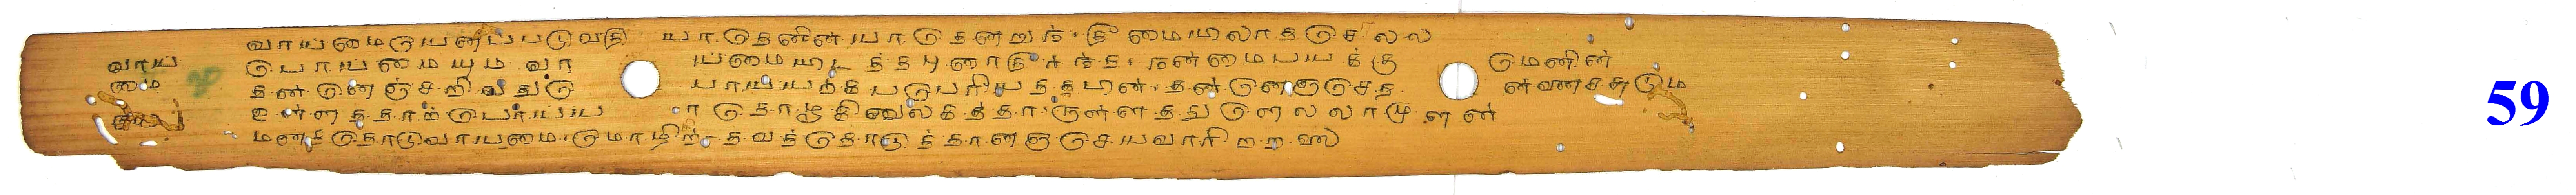 வாய்மையெனப்படுவதி யாதெனின் யாதெனறுந் தீமையிலாத செலல
வாய் பொய்மையும் வாய்மையிடத்த புரைதீர்ந்த நன்மை பயக்குமெனின்
மை தன்னெஞ்சறிவது பொய்யற்க பொய்த்தபின் தன்னெஞ்செ தன்ணசசுடும
உள்ளத்தாற் பொய்யாதொழுகில் உலகத்தாருள்ளத்துளெல்லாமுளன்
மனத்தொடுவாய்மை மொழிற் தவத்தொடுத்தானஞ்செயவாரிற்ற
59